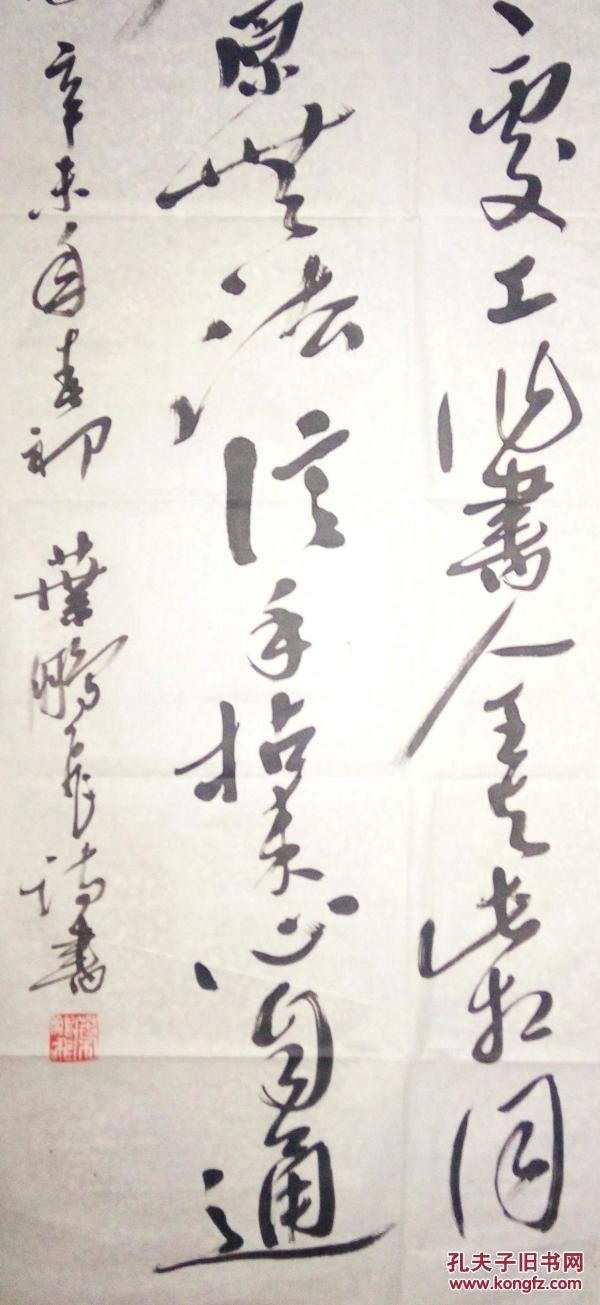 處工作書人此相同
原無法信手拈來心自通
辛未年春初 葉鵬飛詩書
孔夫子旧书网
www.kongfz.com